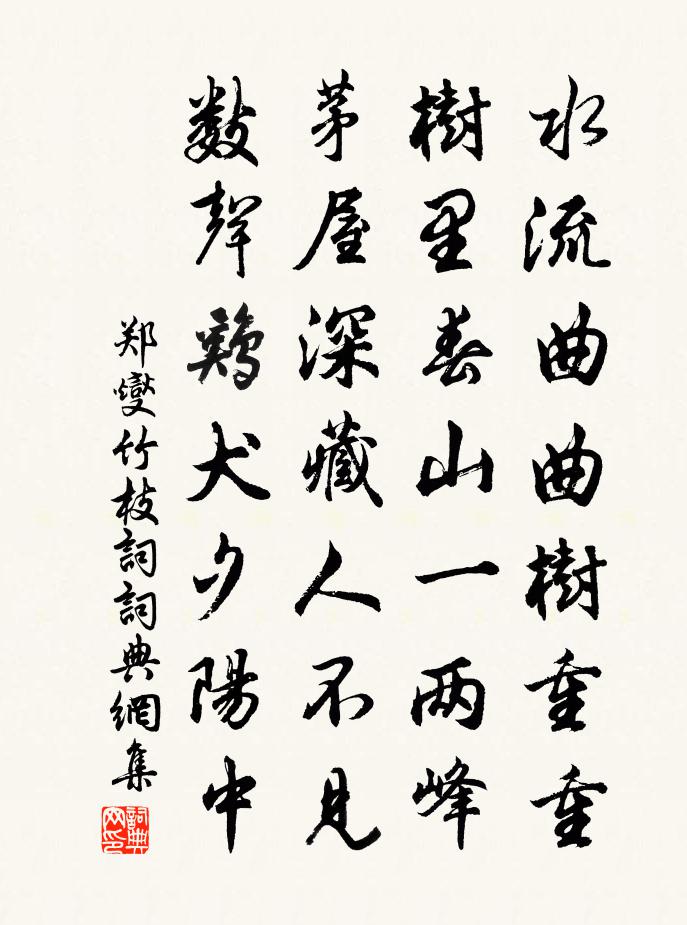 水流曲曲樹重重
樹里春山一两峰
茅屋深藏人不見
數聲鷄犬夕陽中
郑燮竹枝詞詞典網集
詞典网印